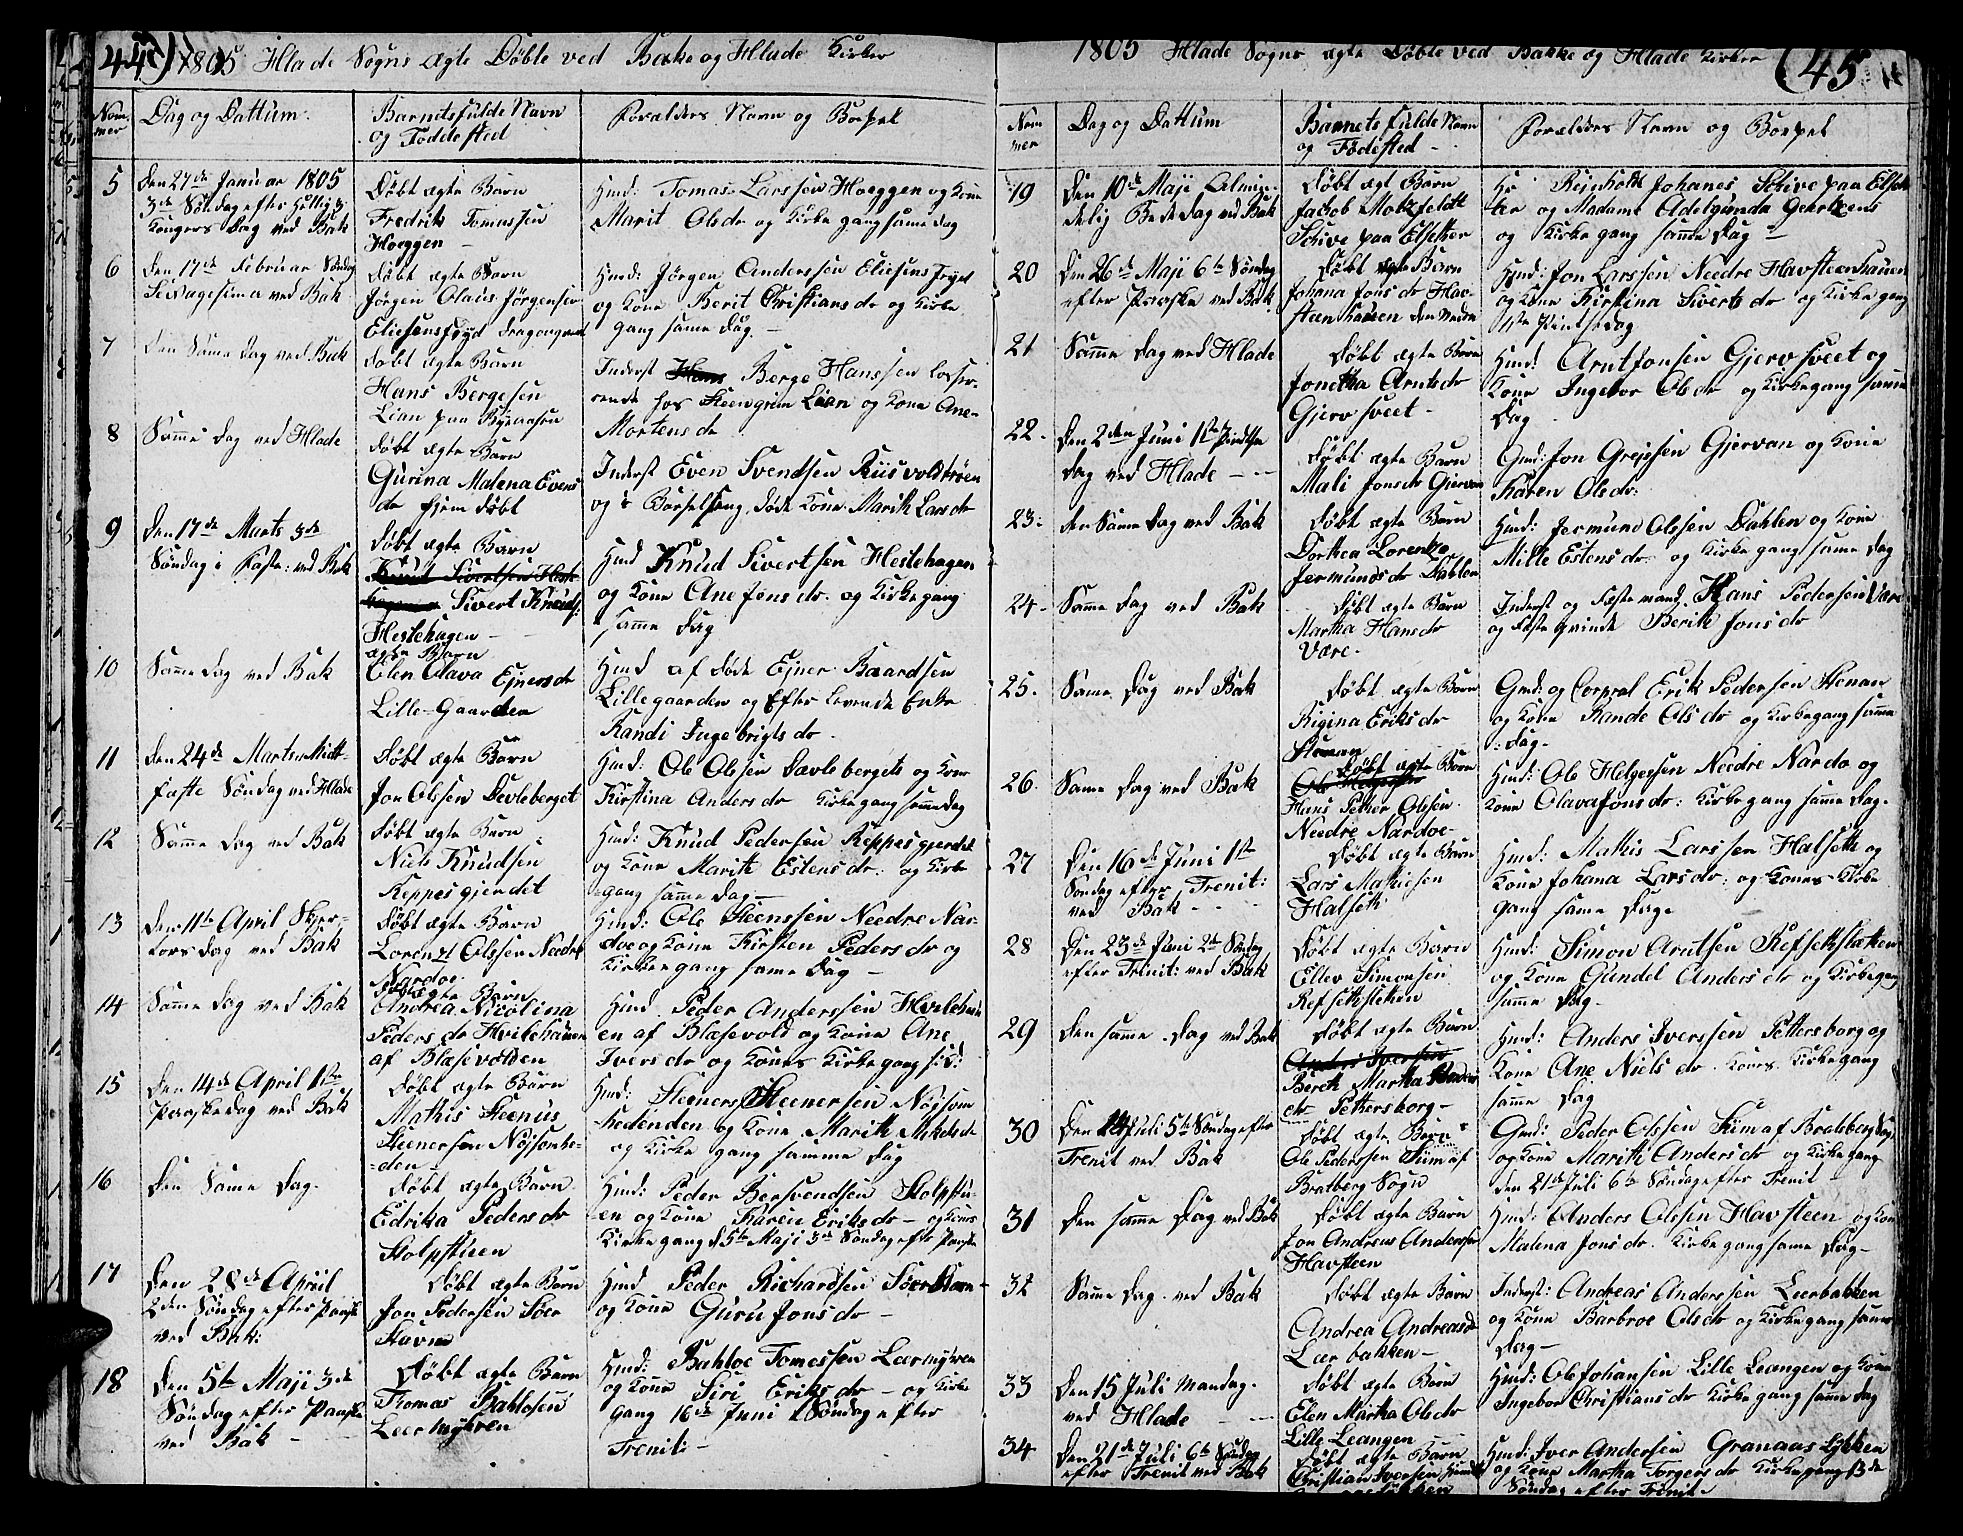 44) 1805 Hlade Sogns ægte Døbte ved Bake og Hlade Kirker
Nom
mer
Dag og Dattum.
Barnets fulde Navn
ogFøddested
Forælders Navn og Bopæl
5
Den 27de Januar 1805
3de Søndag efter Hellig 3
Kongers Dag ved Bak
Døbt ægte Barn
Fredrik Tomassen
Hoeggen
Hmd: Tomas Larssen Hoeggen og Kone
Marit Olsdr og Kirkegang samme dag
6
Den 17de Februar Søndag
ved Bak
Døbt ægte Barn
Jørgen Olaus Jørgensen
Hmd: Jørgen Anderssen
og Kone Berit Christiansdr og Kirke
gang samme dag
7
Den Same dag ved Bak
Døbt ægte Barn
Hans Bergesen
Lian paa Byeaasen
Inderst Berge Hanssen losse-
rende hos Steengrim Lian og Kone Ane
Mortensdr
8
Samme dag ved Hlade
Døbt ægte Barn
Gurina Malena Evens
dr hjem døbt
Inderst Even Svendsen
og i Barselseng døde Kone Marith Larsdr
9
Den 17de Marts 3de
Søndag i Faste ved Bak
Døbt ægte Barn
Sivert Knuds:
Hestehagen
Hmd Knud Sivertsen Hestehagen
og Kone Ane Jonsdr og Kirkegang
samme dag
10
Samme Dag ved Bak
ægte Barn
Elen Olava Ejnersdr
Lille-Gaarden
Hmd af døde Ejner Baardsen
Lillegaarden og Efter levende Enke
Randi Ingebrigtsdr
11
Den 24de Marts Midt-
faste Søndag ved Hlade
Døbt ægte Barn
Jon Olssen Devleberget
Hmd: Ole Olssen Davlebergets og Kone
Kirstina Andersdr Kirkegang sammedag
12
Samme dag ved Bak
Døbt ægte Barn
Niels Knudsen
Reppesgjerdet
Hmd: Knud Pedersen Reppesgjerdet
og Kone Marith Estensdr: og Kirke
gang samme dag
13
Den 11te April Skjer-
torsdag ved Bak
Døbt ægte Barn
Lorentz Olssen Nedre
Nardoe
Hmd: Ole Steenssen Needre Nar-
doe og Kone Kirsten Pedersdr og
Kirkegang same dag
14
Samme dag ved Bak
Døbt ægte Barn
Andrea Nicolina
Pedersdr
af Blæsevolden
Hmd. Peder Anderssen
en af Blæsevold og Kone Ane
Iversdr og Kones Kirkegang
15
Den 14de April 1ste
Paaskedag ved Bak
Døbt ægte Barn
Mathis Steenus
Steenersen
Hmd: Steeners Steenersen Nøjsom
hedenden og Kone Marith
og Kirkegang samme dag
16
Den Same dag.
Døbt ægte Barn
Edrika Pedersdr
Stolpstuen
Hmd: Peder Bersvendsen Stolpstu-
en og Kone Karen Eriksdr og Kones
Kirkegang d 5te Maji 3de Søndag efter Paaske
17
Den 28de April
2den Søndag efter Paaske
ved Bak:
Døbt ægte Barn
Jon Pedersen Soer
Hmd Peder Richardsen
og Kone Guru Jonsdr
18
Den 5te Maji 3de
Søndag efter Paaske
ved Bak
Døbt ægte Barn
Thomas Bahlosen
Leermyhren
Hmd: Bahloe Tomessen Leermyhren
og Kone Siri Eriksdr og Kirke
gang 16de Juni 1 Søndag efter
Trenit:
1805 Hlade Sogns ægte Døbte ved Bakke og Hlade Kirker (45
Nom
mer
Dag og Dattum
Barnets fulde Navn
og Fødested
Forælders Navn og Bopæl
19
Den 10de Maji Almin-
delig Bededag ved Bak
Døbt ægte Barn
Jacob Motzfeldt
Schive paa
Hr Reinholdt Johanes Schive paa
og Madame Adelgunda
og Kirkegang samme dag
20
Den 26de Maji 6te Søndag
efter Paaske ved Bak
Døbt ægte Barn
Johana Jonsdr Hav-
steenhauen den Nedre
Hmd: Jon Larssen Needre Havsteenhauen
og Kone Kirstina Sivertsdr og Kirkegang
1ste Pintsedag
21
Samme Dag ved Hlade
Døbt ægte Barn
Jonetha Arntsdr
Gjervsveet
Hmd: Arnt Jonsen Gjervsveet og
Kone Ingebor Olsdr og Kirkegang samme
Dag
22
Den 2den Juni 1ste Pindtse
dag ved Hlade
Døbt ægte Barn
Mali Jonsdr Gjervan
Gmd: Jon Grejssen Gjervan og Kone
Karen Olsdr:
23
den Samme dag ved Bak
Døbt ægte Barn
Dorthea Lorentze
Jermundsdr Dahlen
Hmd: Jermund Olssen Dahlen og Kone
Mille Estensdr og Kirkegang same dag
24
Samme dag ved Bak
Døbt ægte Barn
Martha Hansdr
Være
Inderst og Fæstemand Hans Pedersen Være
og Fæste qvinde Berith Jonsdr
25
Samme Dag ved Bak
Døbt ægte Barn
Rigina Eriksdr
Stenan
Gmd: og Corpral Erik Pedersen Stenan
og Kone Rande Olsdr og Kirkegang samme
dag
26
Same dag ved Bak
Døbt ægte Barn
Hans Petter Olssen
Needre Nardoe
Hmd: Ole Helgessen Needre Nardo og
Kone Olava Jonsdr: Kirkegang samme dag
27
Den 16de Juni 1ste
Søndag efter Trenit:
ved Bak
Døbt ægte Barn
Lars Mathiesen
Halseth
Hmd: Mathis Larssen Halseth og
Kone Johana Larsdr: og Kones Kirke
gang same Dag
28
Den 23de Juni 2de Søndag
efter Trenit: ved Bak
Døbt ægte Barn
Ellev Simonsen
Refsethsletten
Hmd: Simon Arntsen Refsethsletten
og Kone Gundel Andersdr og Kirkegang
samme Dag
29
Den samme Dag ved Bak
Døbt ægte Barn
Bereth Martha Anders
dr Pettersborg
Hmd: Anders Iverssen Pettersborg og
Kone Ane Nielsdr Kones Kirkegang
samme Dag
30
Den 14 Juli 5te Søndag efter
Trenit ved Bak
Døbt ægte Barn
Ole Pederssen
Bratberg Sogn
Gmd: Peder Olssen
og Kone Marithi Andersdr og Kirkegang
den 21de Juli 6te Søndag efter Trenit
31
Den samme Dag ved Bak
Døbt ægte Barn
Jon Andreas Andersen
Havsteen
Hmd: Anders Olssen Havsteen og Kone
Malena Jonsdr. Kirkegang same dag
32
Samme Dag ved Bak
Døbt ægte Barn
Andrea Andreasdr
Leerbakken
Inderst: Andreas Anderssen Leerbakken
og Kone Barbroe Olsdr og Kirkegang samme
Dag
33
Den 15 Juli Mandag
ved Hlade
Døbt ægte Barn
Elen Martha Olsdr
Lille Leangen
Hmd: Ole Johansen Lille Leangen og Kone
Ingebor Christiansdr Kirkegang samme dag
34
Den 21de Juli 6te Søndag
efter Trenit ved Bak
Døbt ægte Barn
Christian Iversen
Hmd: Iver Andersen Granaas Løkken
og Kone Martha Torgersdr Kirkegang 13de
Søndag efter Trenit